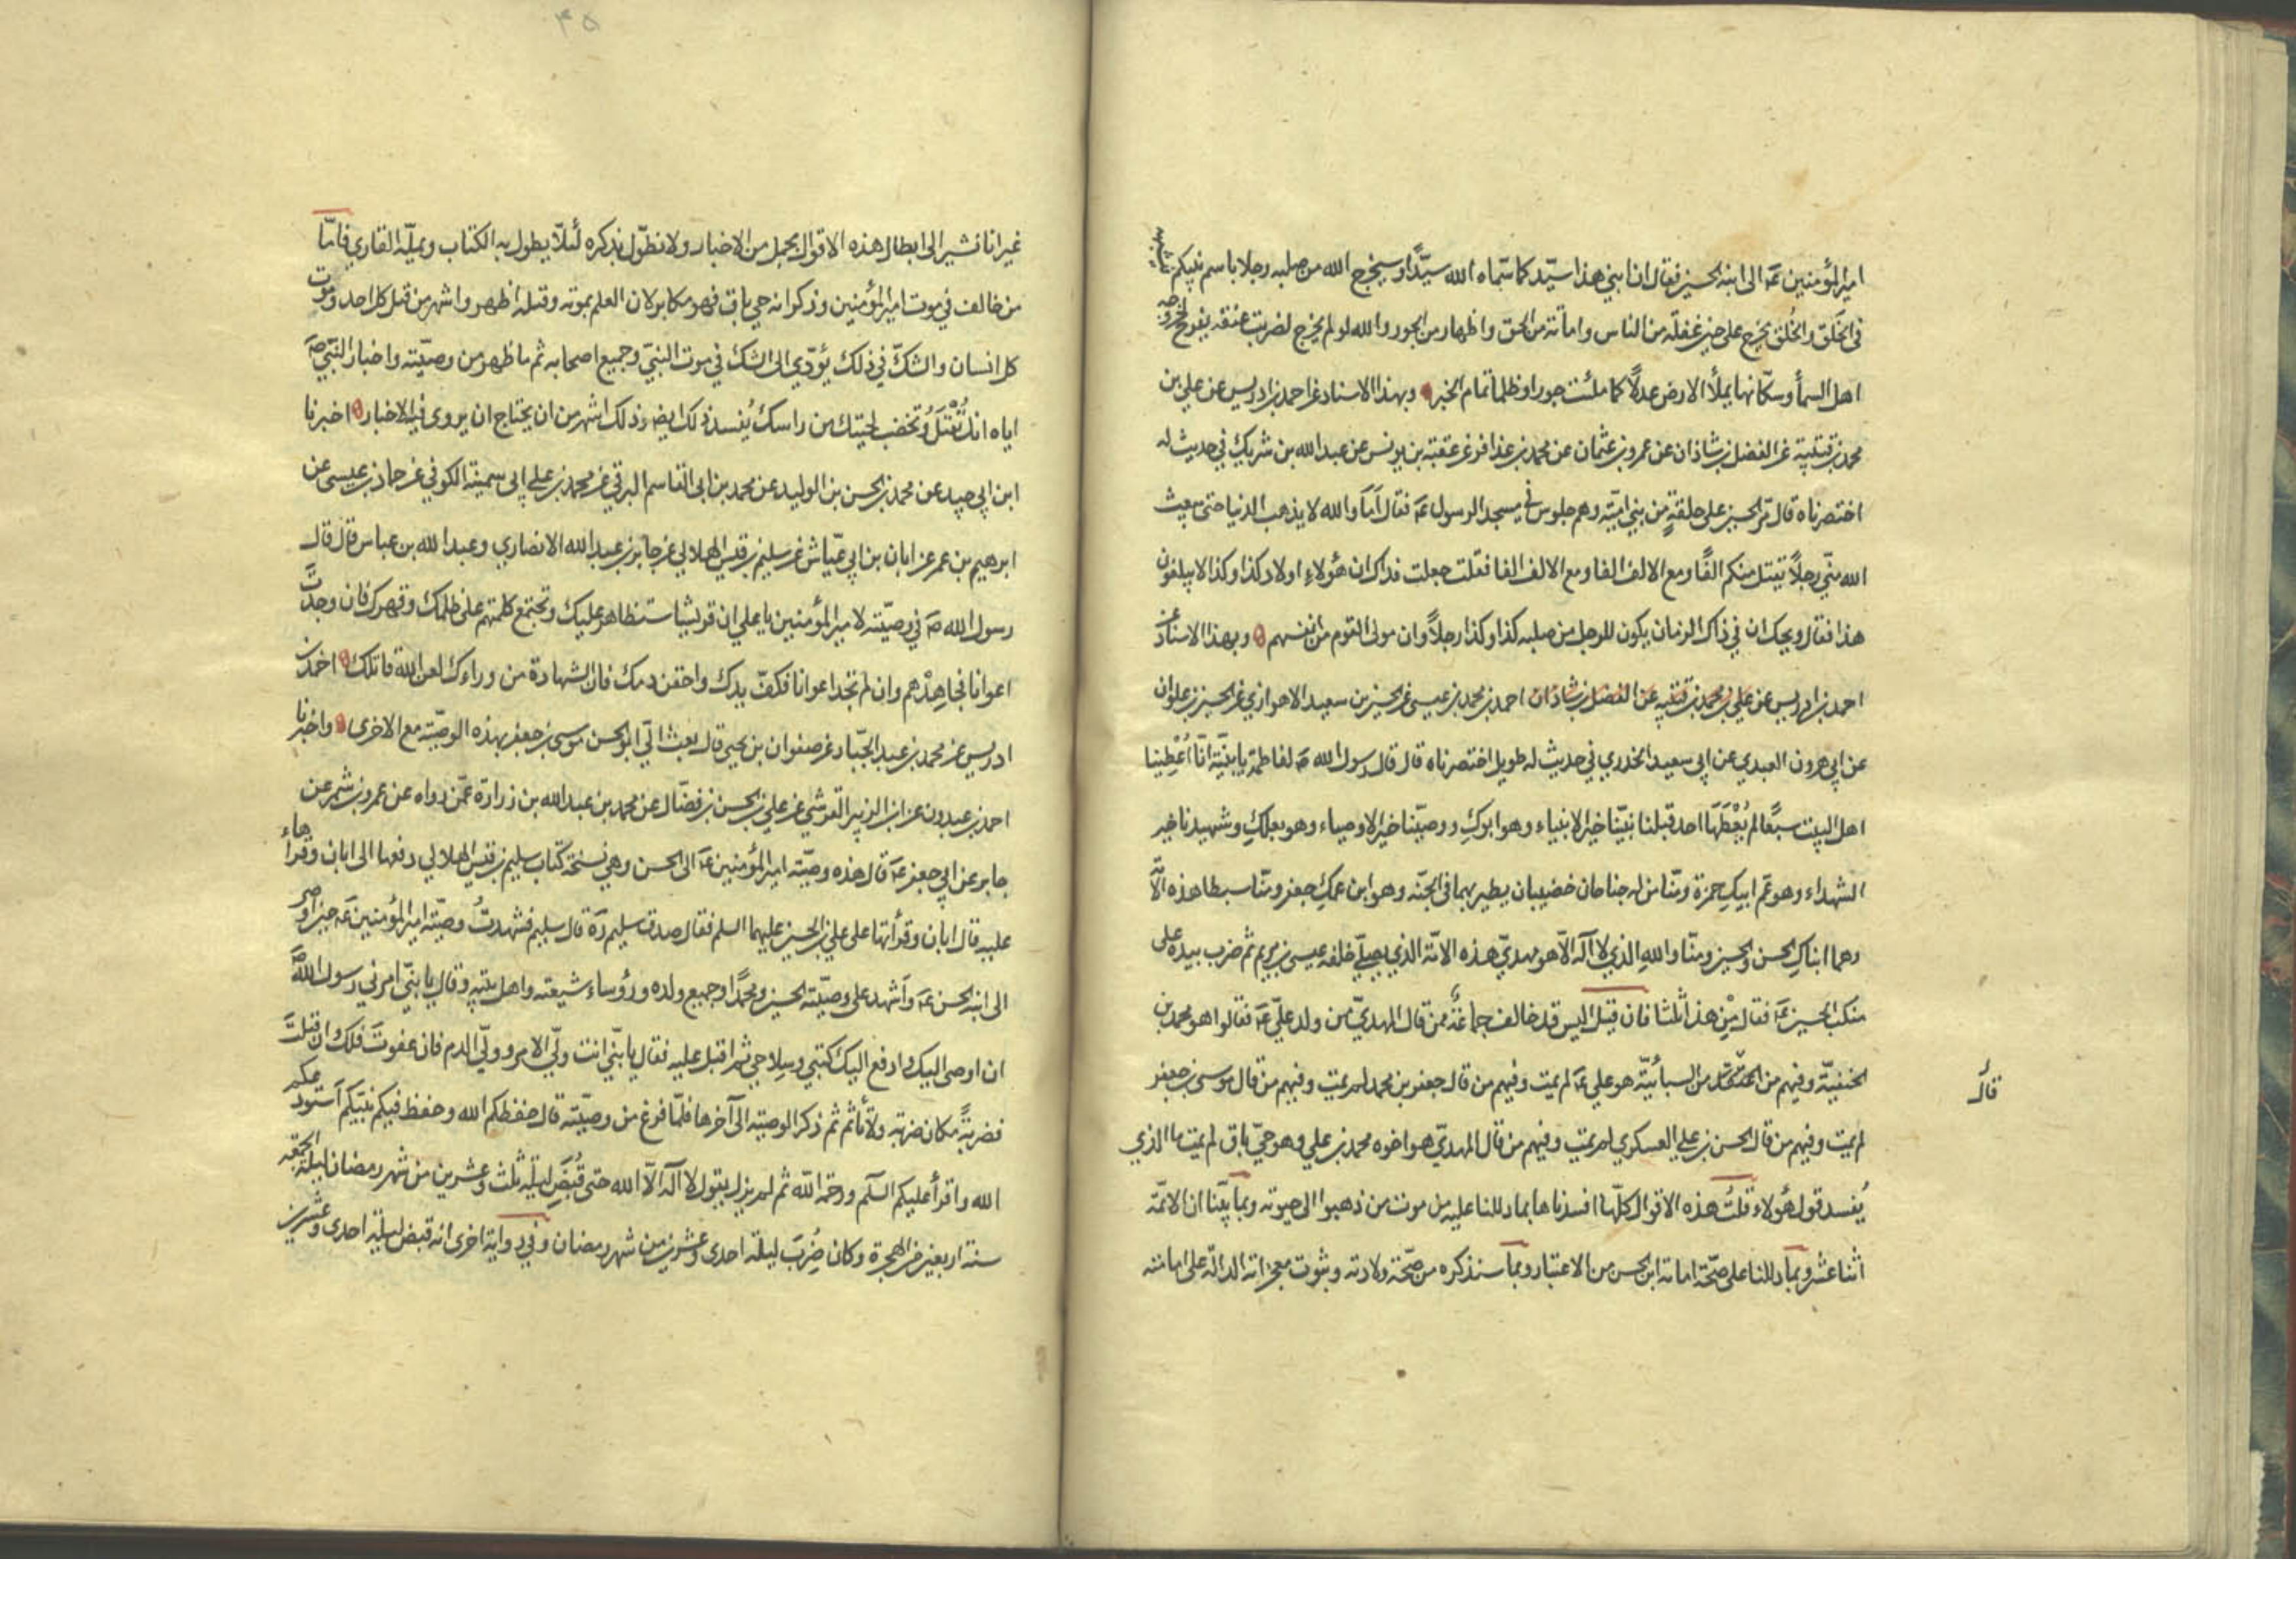 امير المؤمنين عم الى ابنه الحسين فقال ان ابني هذا سيّد كما سمّاه الله سيّدًا وسيخرج الله من صلبه رجلا باسم نبيكم
في الخَلق والخُلق يخرج على حين غفلة من الناس واماتة من الحق واظهار من الجور والله لو لم يخرج لضربت عنقه يفرح لخروجه
اهل السمأ وسكّانها يملأ الارض عدلًا كما ملئت جورا وظلما تمام الخبر وبهذا الاسناد عن احمد بن ادريس عن علي بن
محمد بن قتيبة عن الفضل بن شاذان عن عمرو بن عثمان عن محمد بن عذافر عن عقبة بن يونس عن عبد الله بن شريك في حديث له
اختصرناه قال مرّ الحسين على حلقةٍ من بني اميّه وهم جلوس في مسجد الرسول عم فقال اَمَا والله لا يذهب الدنيا حتى يبعث
الله منّي رجلاً يقتل منكم الفًا ومع الالف الفا ومع الالف الفا فقلت جعلت فداك ان هؤلاءِ اولاد كذا وكذا لا يبلغون
هذا فقال ويحك ان في ذاك الزمان يكون للرجل من صلبه كذا وكذا رجلاً وان مولى القوم من انفسهم وبهذا الاسناد عن
احمد بن ادريس عن علي بن محمد بن قتيبه عن الفضل بن شاذان احمد بن محمد بن عيسى عن الحسين بن سعيد الاهوازي عن الحسين بن علوان
عن ابي هرون العبدي عن ابي سعيد الخدري في حديث له طويل اختصرناه قال قال رسول الله ص لفاطمة يا بنيّة انّا اُعْطِينا
اهل البيت سبعًا لم يُعْطَهَا احد قبلنا نبيّنا خير الانبياء وهو ابوكِ ووصيّنا خير الاوصياء وهو بعلكِ وشهيدنا خير
الشهداء وهو عم ابيكِ حمزة ومنّا من له جناحان خضيبان يطير بهما في الجنّه وهو ابن عمكِ جعفر ومنّا سبطا هذه الامّة
وهما ابناكِ الحسن والحسين ومنّا واللهِ الذي لا اله الّا هو مهديّ هذه الامّة الذي يصلّي خلفه عيسى بن مريم ثم ضرب بيده على
منكب الحسين عم فقال مِنْ هذا ثلثا فان قيل اليس قد خالف جماعَةٌ ممن قال المهديّ من ولد عليّ عم فقالوا هو محمد بن
الحنفيّة وفيهم من من السبائيّة هو علي عم لم يمت وفيهم من قال جعفر بن محمد لم يمت وفيهم من قال موسى بن جعفر
قال
لم يمت وفيهم من قال الحسن بن علي العسكري لم يمت وفيهم من قال المهديّ هو اخوه محمد بن علي وهو حيّ باق لم يمت ما الذي
يُفسد قول هؤلاء قلتُ هذه الاقوال كلّها افسدناها بما دللنا عليه من موت من ذهبوا الى حيوته وبما بيّنا ان الائمّة
اثنا عشر وبما دللنا على صحّة امامة ابن الحسن من الاعتبار وبما سنذكره من صحّة ولادته وثبوت معجزاته الدالّة على امامته
۴۵
غير انا نشير الى ابطال هذه الاقوال بجمل من الاخبار ولا نطوّل بذكره لئلّا يطول به الكتاب ويملّه القاري فامّا
من خالف في موت امير المؤمنين وذكر انه حي باق فهو مكابر لان العلم بموته وقتله اظهر واشهر من قتل كل احد وموت
كل انسان والشكّ في ذلك يؤدّي الى الشك في موت النبيّ وجميع اصحابه ثم ما ظهر من وصيّته واخبار النبيّ ص
اياه انك تُقْتَلُ وتخضب لحيتك من راسك يُفسد ذلك ايضا وذلك اشهر من ان يحتاج ان يروى فيه الاخبار اخبرنا
ابن ابي جيد عن محمد بن الحسن بن الوليد عن محمد بن ابي القاسم البرقي عن محمد بن علي ابي سمينة الكوفي عن حماد بن عيسى عن
ابرهيم بن عمر عن ابان بن ابي عيّاش عن سليم بن قيس الهلالي عن جابر بن عبد الله الانصاري وعبد الله بن عباس قال قال
رسول الله ص في وصيّته لامير المؤمنين يا علي ان قريشا ستظاهر عليك وتجتمع كلمتهم على ظلمك وقهرك فان وجدتَ
اعوانا فجاهِدْهم وان لم تجد اعوانا فكفّ يدك واحقن دمك فان الشهادة من وراءك لعن الله قاتلك احمد بن
ادريس عن محمد بن عبد الجبّار عن صفوان بن يحيى قال بعث اليّ ابو الحسن موسى بن جعفر بهذه الوصيّة مع الاخرى واخبرنا
احمد بن عبدون عن ابن الزبير القرشي عن علي بن الحسن بن فضّال عن محمد بن عبد الله بن زرارة عمّن رواه عن عمرو بن شمر عن
جابر عن ابي جعفر عم قال هذه وصيّة امير المؤمنين عم الى الحسن وهي نسخة كتاب سليم بن قيس الهلالي دفعها الى ابان وقرأها
عليه قال ابان وقرأتها على علي بن الحسين عليهما السلم فقال صدق سليم ره قال سليم فشهدتُ وصيّة امير المؤمنين عم حين اوصى
الى ابنه الحسن عم وأشهد على وصيّته الحسين ومحمّدًا وجميع ولده ورؤساء شيعته واهل بيته وقال يا بنيّ امرني رسول الله ص
ان اوصي اليك وادفع اليك كتبي وسلاحي ثم اقبل عليه فقال يا بنّي انت وليّ الامر ووليّ الدم فان عفوتَ فلك وان قتلتَ
فضربةً مكان ضربة ولا تأثم ثم ذكر الوصية الى آخرها فلمّا فرغ من وصيّته قال حفظكم الله وحفظ فيكم نبيّكم أستودعكم
الله واقرأ عليكم السلم ورحمة الله ثم لم يزل يقول لا اله الّا الله حتى قُبِضَ ليلة ثلث وعشرين من شهر رمضان ليلة الجمعة
سنة اربعين من الهجرة وكان ضُرِبَ ليلة احدى وعشرين من شهر رمضان وفي رواية اخرى انه قبض ليلة احدى وعشرين